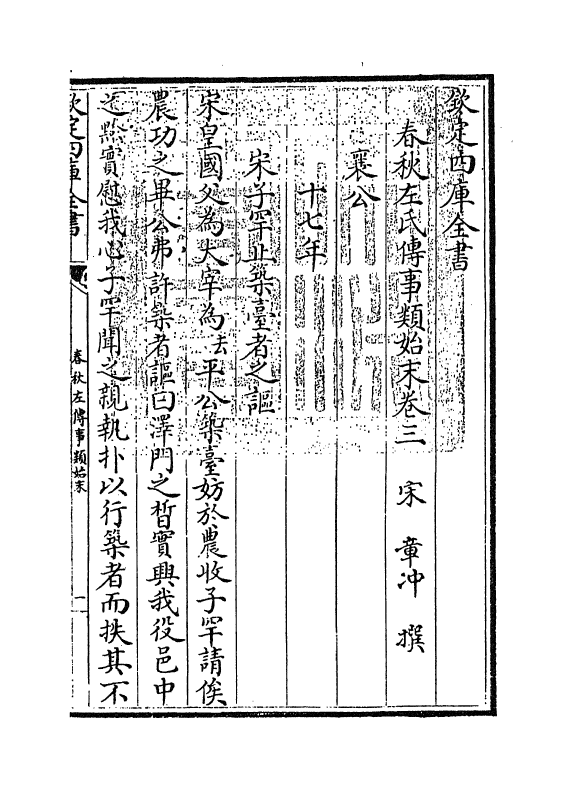 欽定四庫全書
春秋左氏傳事類始末卷三 宋 章冲 撰
襄公
十七年
宋子罕止築臺者之謳
宋皇國父為大宰為去平公築臺妨於農收子罕請俟
農功之畢公弗許築者謳曰澤門之晳實興我役邑中
之黔實慰我心子罕聞之親執扑以行築者而抶其不
欽定四庫全書
春秋左傳事類始末
一